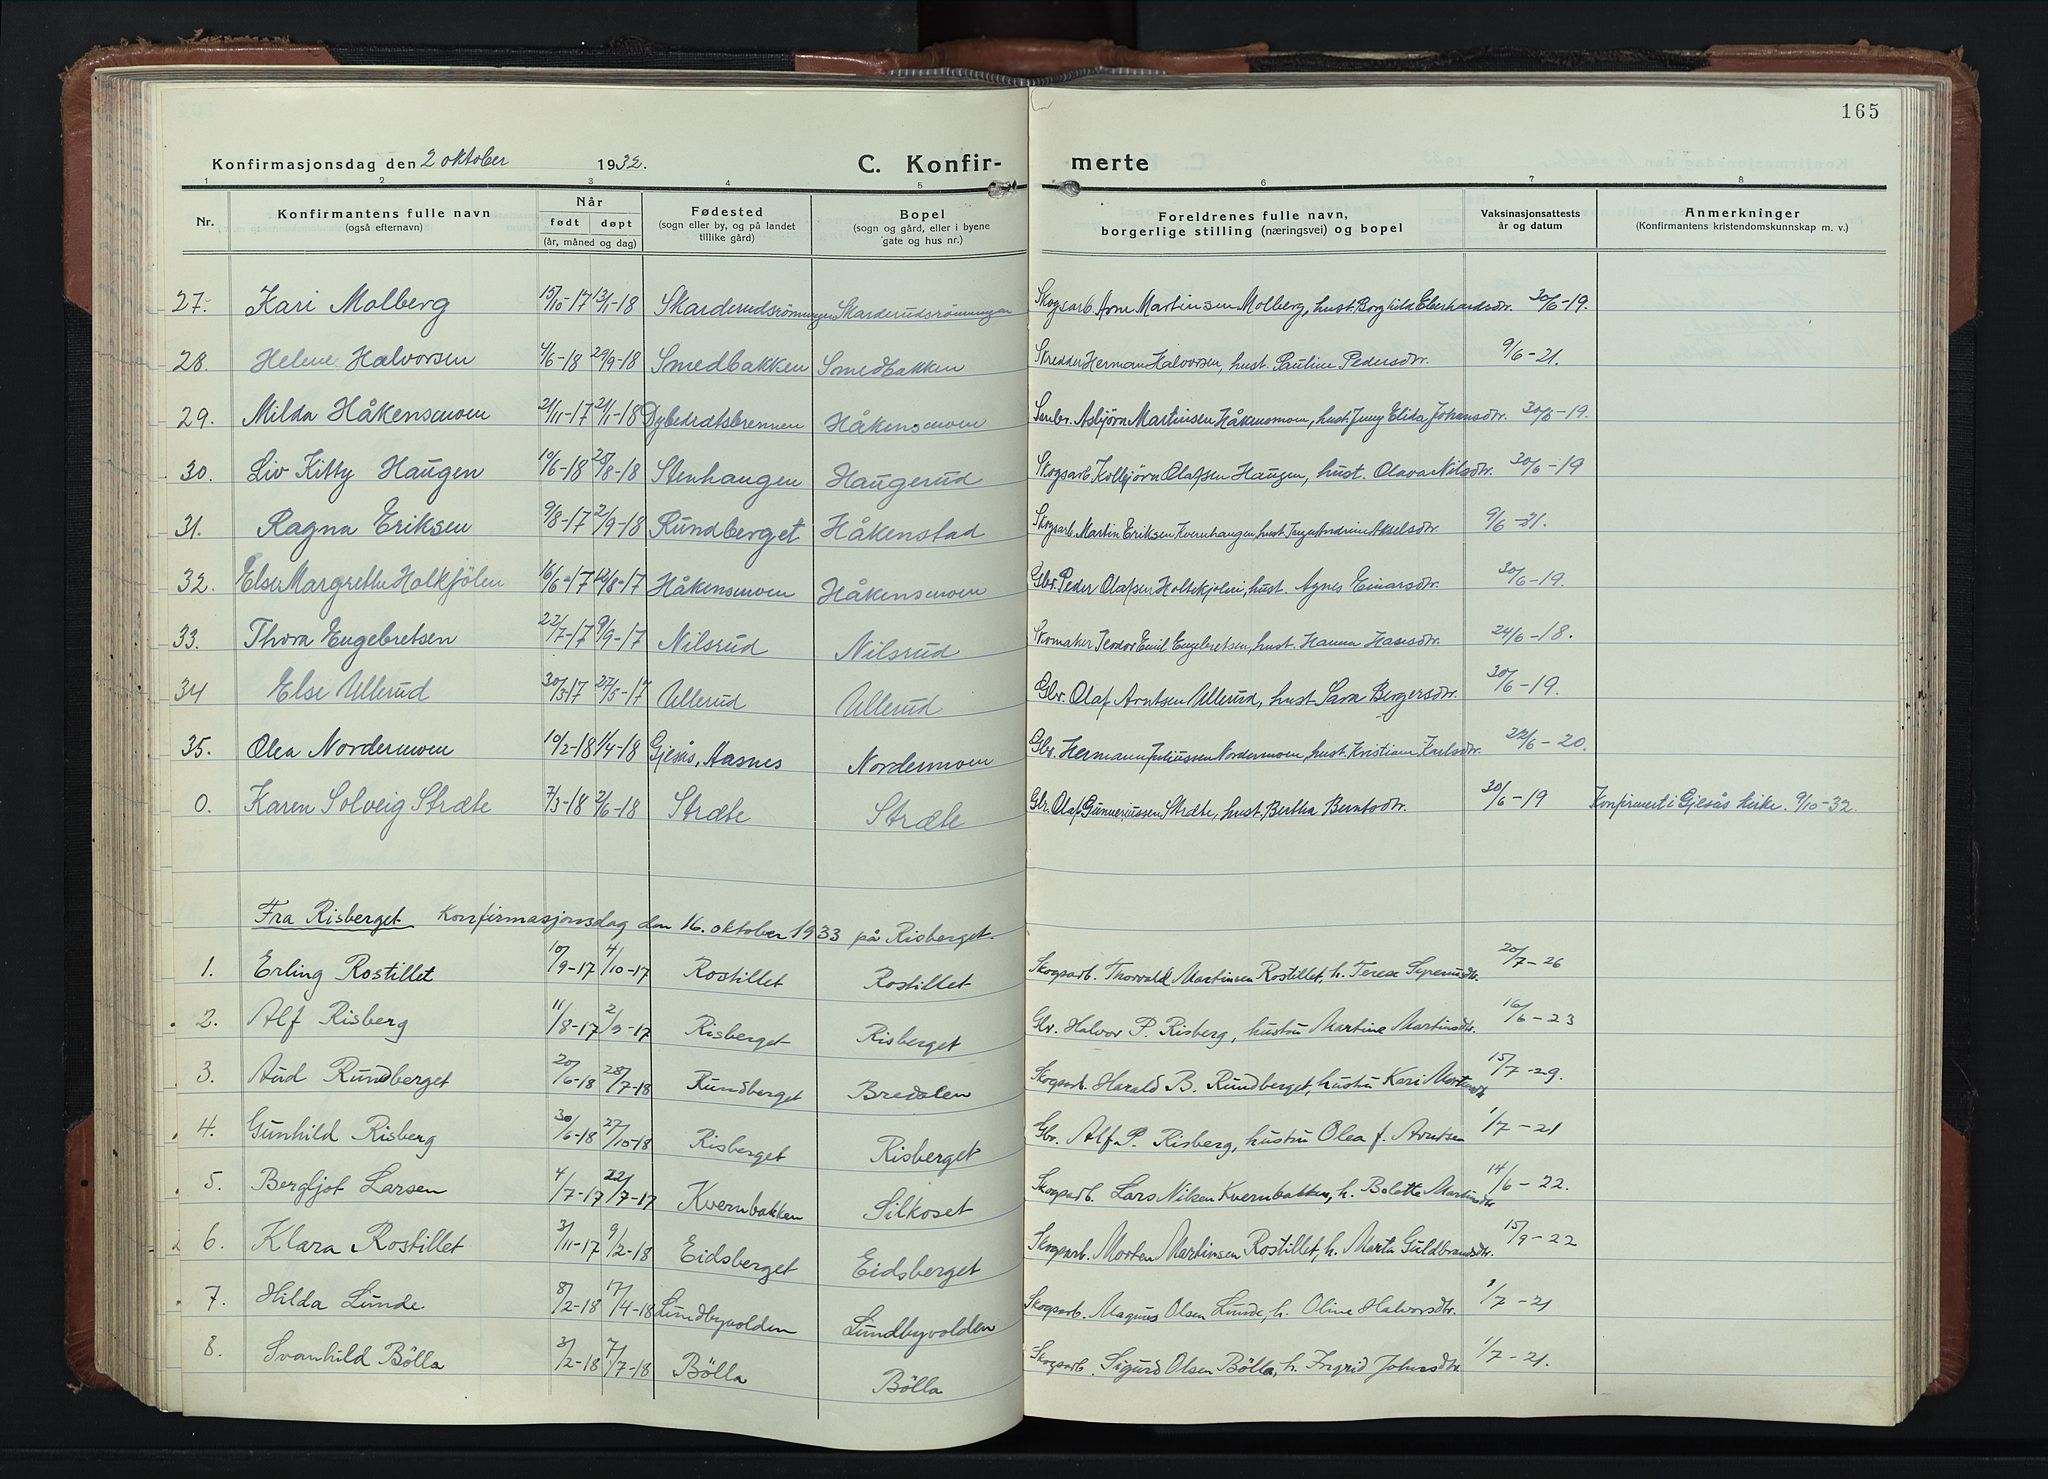 165
Konfirmasjonsdag den 2 oktober 1932. C. Konfir- merte
1 2 3 4 5 6 7 8
Nr. Konfirmantens fulle navn (også efternavn) Når født døpt (år, måned og dag) Fødested (sogn eller by, og på landet tillike gård) Bopel (sogn og gård, eller i byene gate og hus nr.) Foreldrenes fulle navn, borgerlige stilling (næringsvei) og bopel Vaksinasjonsattests år og datum Anmerkninger (Konfirmantens kristendomskunnskap m. v.)
27. Kari Molberg 15/10-17 13/1-18 Skarderudsrømningen Skarderudsrømningen Skogsarb. Arne Martinsen Molberg, hust. Borghild Eberhardsdtr. 30/6-19.
28. Helene Halvorsen 4/6-18 29/9-18 Smedbakken Smedbakken Skredder Herman Halvorsen, hust. Pauline Pedersdtr. 9/6-21.
29. Milda Håkensmoen 21/11-17 21/1-18 Dybedratsbrennen Håkensmoen Småbr. Asbjørn Martinsen Håkensmoen, hust. Jenny Elida Johansdtr. 30/6-19.
30. Liv Kitty Haugen 10/6-18 25/8-18 Stenhaugen Haugerud Skogsarb. Kolbjørn Olafsen Haugen, hust. Olava Nilsdtr. 30/6-19
31. Ragna Eriksen 9/8-17 2/9-18 Rundberget Håkenstad Skogsarb. Martin Eriksen Kvernhaugen, hust. Andrine Akselsdtr. 9/6-21.
32. Else Margrethe Holkjölen 16/6-17 12/8-17 Håkensmoen Håkensmoen Gbr. Peder Olafsen Holtskjolen, hust. Agnes Einarsdtr. 30/6-19.
33. Thora Engebretsen 22/7-17 9/9-17 Nilsrud Nilsrud Skomaker Teodor Emil Engebretsen, hust. Hanna Hansdtr. 24/6-18.
34 Else Ullerud 30/3-17 27/5-17 Ullerud Ullerud Gbr. Olaf Arntsen Ullerud, hust. Sara Bergersdtr. 30/6-19.
35. Olea Nordermoen 10/2-18 1/4-18 Gjesås, Aasnes Nordermoen Gbr. Herman Juliussen Nordermoen, hust. Kristiane Karlsdtr. 22/6-20.
0. Karen Solveig Stræte 7/3-18 2/6-18 Stræte Stræte Gbr. Olaf Gunneriussen Stræte, hust. Bertha Berntsdtr. 30/6-19 Konfirmert i Gjesås kirke. 9/10-32.
Fra Risberget Konfirmasjonsdag den 16. oktober 1933 på Risberget.
1. Erling Rostillet 10/9-17 4/10-17 Rostillet Rostillet Skogsarb. Thorvald Martinsen Rostillet, h. Terese Syverinsdtr. 20/7-26
2. Alf Risberg 11/8-17 2/9-17 Risberget Risberget Gbr. Halvor P. Risberg, hustru Martine Martinsdtr. 16/6-23
3. Aud Rundberget 20/6-18 28/7-18 Rundberget Bredalen Skogsarb. Harald B. Rundberget, hustru Kari 15/7-29.
4. Gunhild Risberg 30/6-18 27/10-18 Risberget Risberget Gbr. Alf P. Risberg, hustru Olea f. Arntsen 1/7-21
5. Bergljot Larsen 4/7-17 22/7-17 Kvernbakken Silkoset Skogsarb. Lars Nilsen Kvernbakken, h. Bolette Martinsdtr 14/6-22.
6. Klara Rostillet 3/11-17 9/2-18 Eidsberget Eidsberget Skogsarb. Morten Martinsen Rostillet, h. Marta Guldbrandsdtr. 15/9-22
7. Hilda Lunde 8/2-18 17/4-18 Lundbyvolden Lundbyvolden Skogsarb. Magnus Olsen Lunde, h. Oline Halvorsdtr. 1/7-21
8. Svanhild Bölla 3/2-18 7/7-18 Bölla Bölla Skogsarb. Sigurd Olsen Bölla, h. Ingrid Johnsdtr 1/7-21.